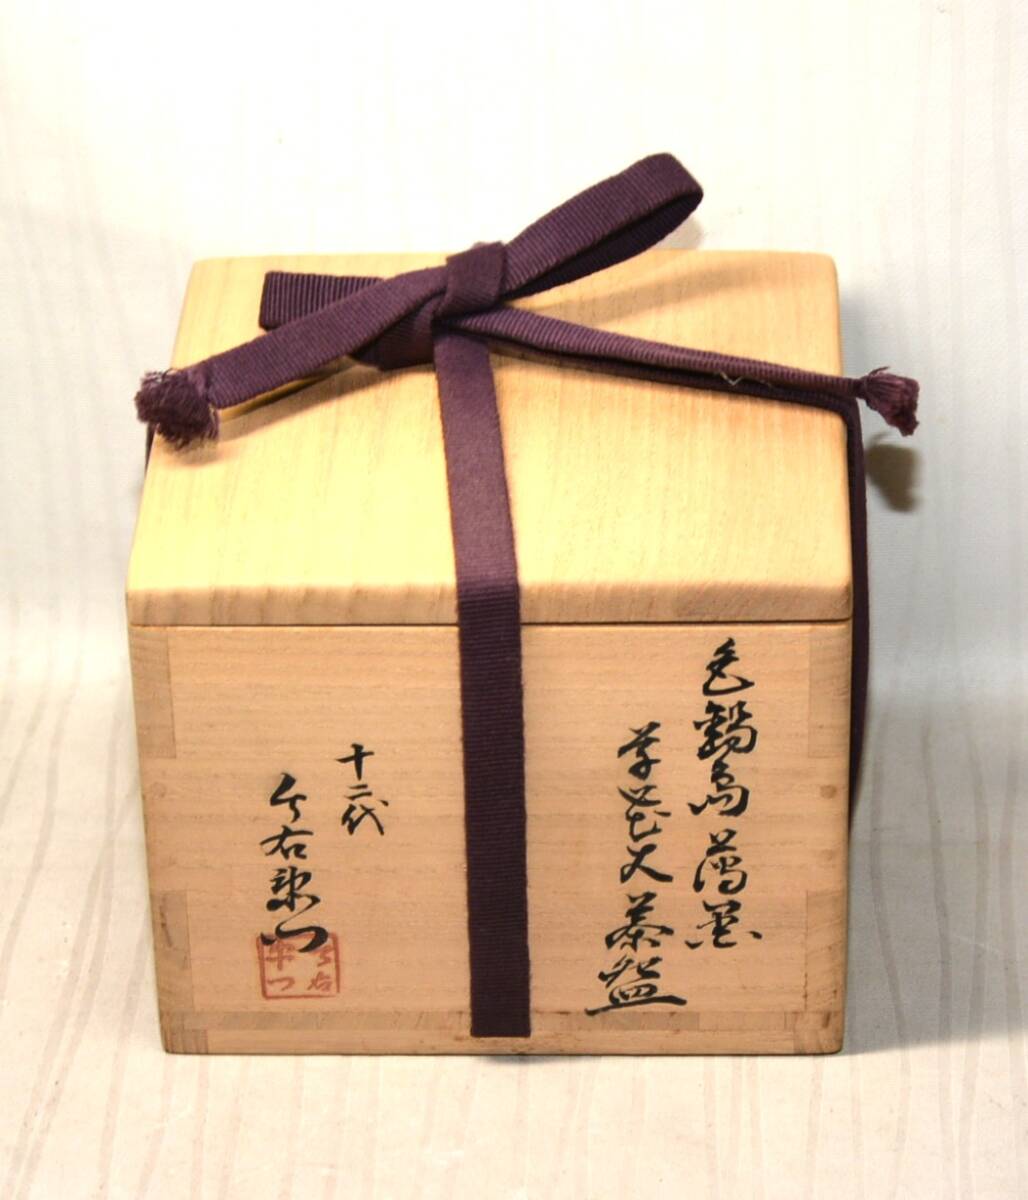 色鍋島薄墨
草花文茶盌
十二代
今右衛門
今右衛門